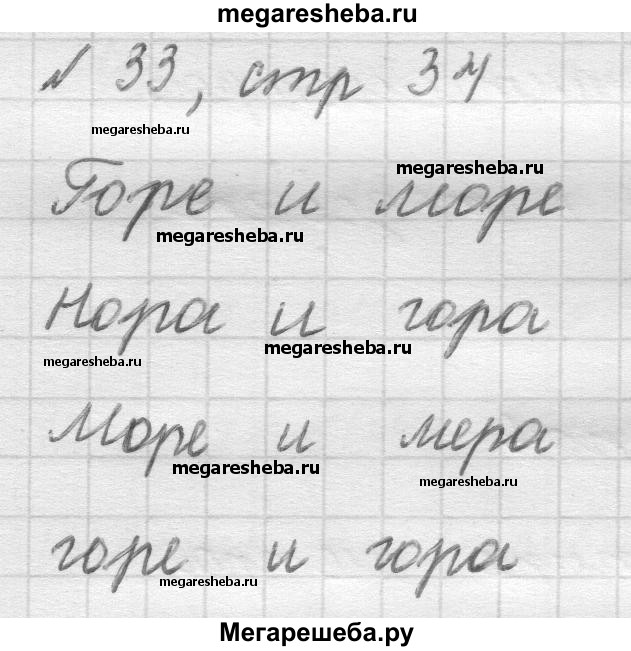 megaresheba.ru
№ 33, стр 34
megaresheba.ru
megaresheba.ru
Горе и море
megaresheba.ru
Нора и гора
megaresheba.ru
megaresheba.ru
Море и мера
megaresheba.ru
megaresheba.ru
горе и гора
megaresheba.ru
Мегарешеба.ру